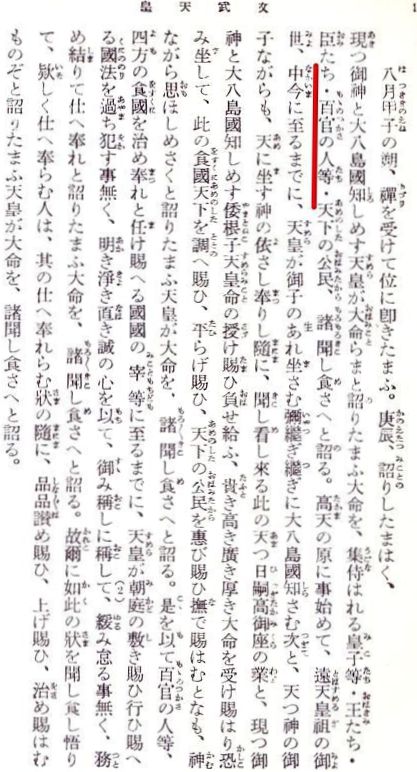 文武天皇
1
八月甲子の朔、禪を受けて位に卽きたまふ。庚辰、詔りしたまはく、
現つ御神と大八島國知しめす天皇が大命らまと詔りたまふ大命を、集侍はれる皇子等・王たち・
臣たち・百官の人等・天下の公民、諸聞し食さへと詔る。高天の原に事始めて、遠天皇祖の御
世、中今に至るまでに、天皇が御子のあれ坐さむ彌繼ぎ繼ぎに大八島國知さむ次と、天つ神の御
子ながらも、天に坐す神の依さし奉りし隨に、聞し看し來る此の天つ日嗣高御座の業と、現つ御
神と大八島國知しめす倭根子天皇命の授け賜ひ負せ給ふ、貴き高き廣き厚き大命を受け賜はり恐
み坐して、此の食國天下を調へ賜ひ、平らげ賜ひ、天下の公民を惠び賜ひ撫で賜はむとなも、神
ながら思ほしめさくと詔りたまふ天皇が大命を、諸聞し食さへと詔る。是を以て百官の人等、
四方の食國を治め奉れと任け賜へる國國の宰等に至るまでに、天皇が朝庭の敷き賜ひ行ひ賜へ
る國法を過ち犯す事無く、明き淨き直き誠の心を以て、御み稱しに稱して、(2)緩み怠る事無く、務
め結りて仕へ奉れと詔りたまふ大命を、諸聞し食さへと詔る。故爾に如此の狀を聞し食し悟り
て、欵しく仕へ奉らむ人は、其の仕へ奉れらむ狀の隨に、品品讃め賜ひ、上げ賜ひ、治め賜はむ
ものぞと詔りたまふ天皇が大命を、諸聞し食さへと詔る。